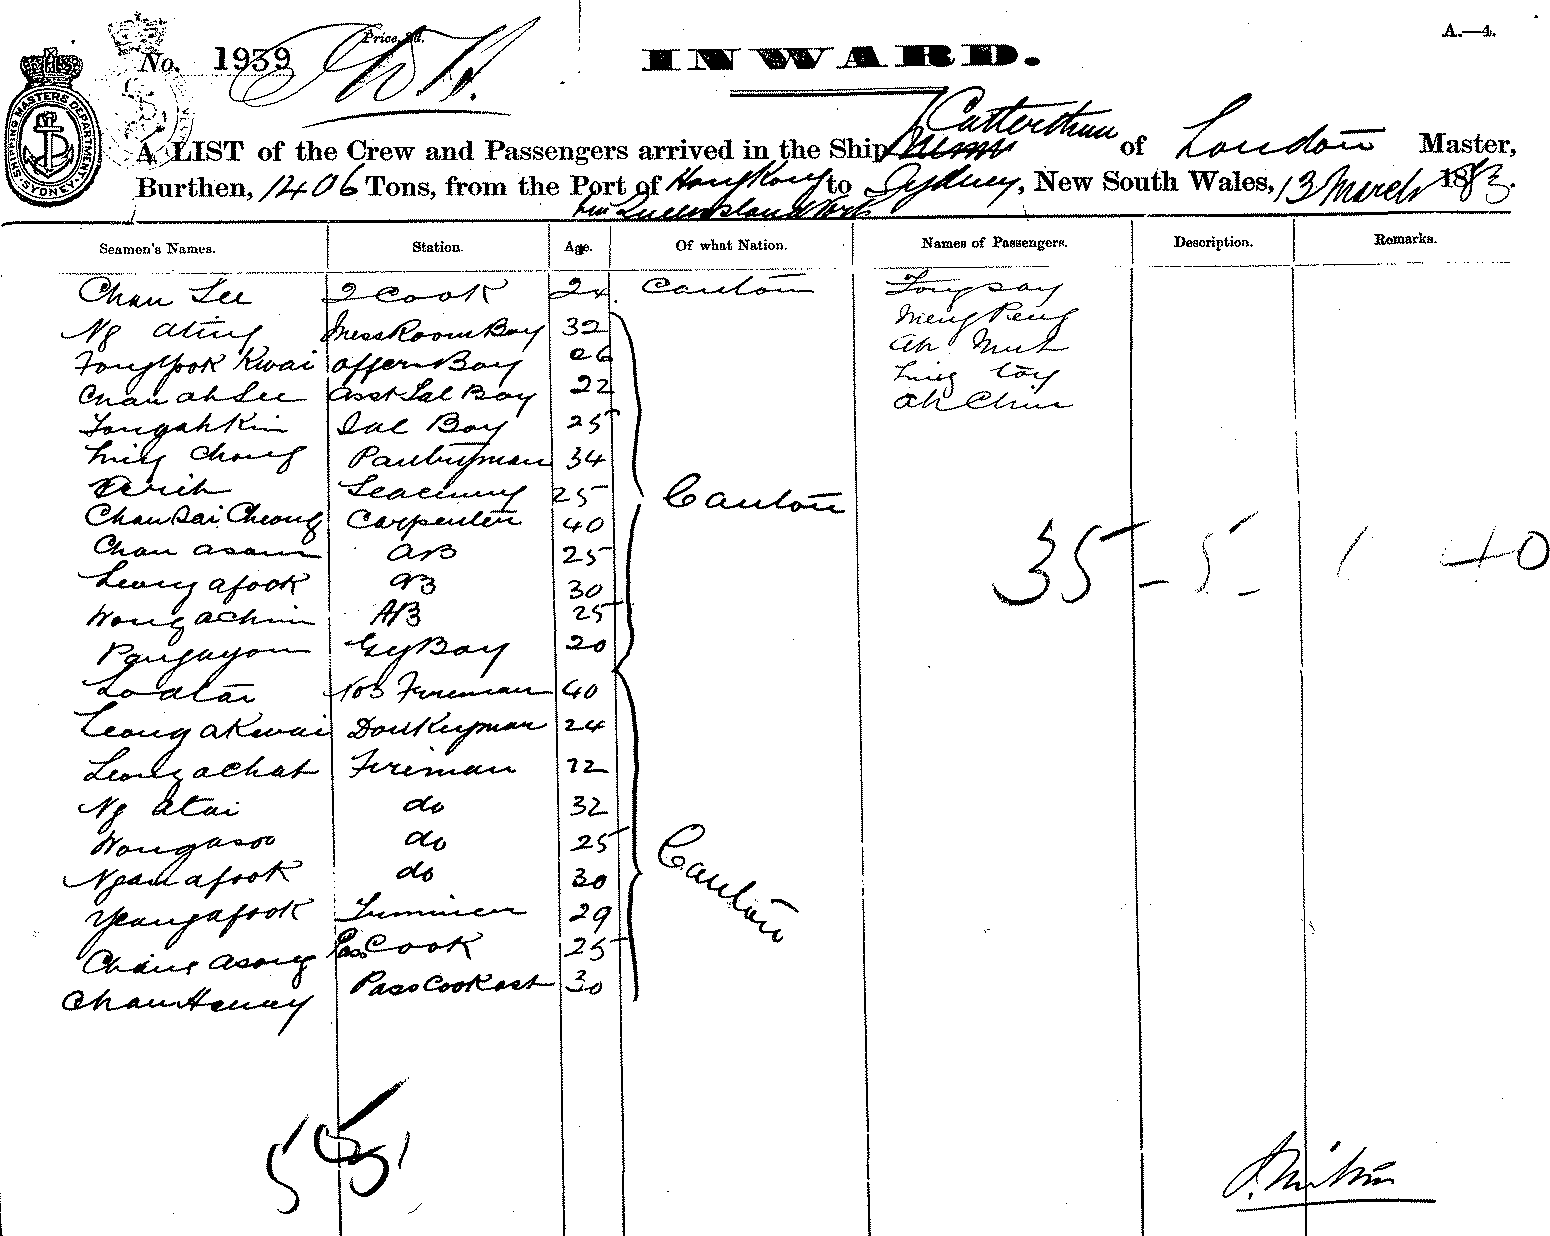 A.—4.
Price, 3d.
No. 1939
INWARD.
SHIPPING MASTERS DEPARTMENT SYDNEY
A LIST of the Crew and Passengers arrived in the Ship Catterthun of London Master,
Burthen, 1406 Tons, from the Port of Hong Kong to Sydney, New South Wales, 13 March 1883.
via Queensland Ports
Seamen's Names. Station. Age. Of what Nation. Names of Passengers. Description. Remarks.
Chan See 2 Cook 24 Canton Tongsay
Ng ating Mess Room Boy 32 Meng Peng
Fong Fook Kwai officers Boy 26 Ah
Chan ah See asst Sal Boy 22 Ling toy
Tongah Kin Sal Boy 25 Ah Chin
Ling Chong Pantryman 34
25 Canton
Chan Sai Cheong Carpenter 40
Chan asam AB 25
Leong afook AB 30
35 - 5 - / 40
Wong achim AB 25
Pangayon Boy 20
Lo atai No3 Fireman 40
Leong akwai Donkeyman 24
Leong achat Fireman
Ng atai do 32
Wongasoo do 25 Canton
Ngan afook do 30
Yeongafook Trimmer 29
asong Pass Cook 25
Chan Pass Cook asst 30